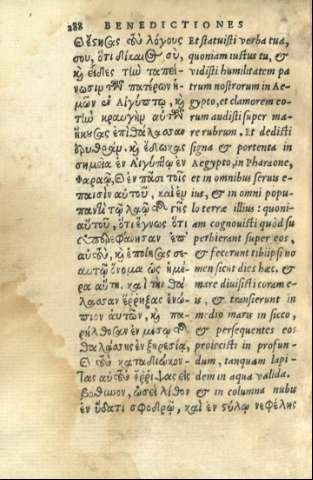 288 BENEDICTIONES
ἔστησας σοῦ λόγους
σου, ὅτι δίκαιος σύ,
καὶ εἶδες τὼ ταπεί-
νωσιν τῶν πατέρων ἡ-
μῶν ἐν Αἰγύπτῳ, καὶ
τὼ κραυγὴν αὐτῶν
ἤκουσας ἐπὶ θάλασσαν
ἐρυθρὰν, καὶ ἔδωκας
σημεῖα ἐν Αἰγύπτῳ ἐν
Φαραῷ, ἐν πᾶσι τοῖς
παισὶν αὐτοῦ, καὶ ἐν
παντὶ τῷ λαῷ τῆς
αὐτοῦ, ὅτι ἔγνως ὅτι
ἐπ᾽
αὐτοὺς, καὶ ἐποίησας σε-
αυτῷ ὄνομα ὡς ἡμέ-
ρα αὕτη, καὶ τὴν θά-
λασσαν ἔρρηξας ἐνώ-
πιον αὐτῶν, καὶ πα-
ρήλθοσαν ἐν μέσῳ τῆς
θαλάσσης ἐν ξηρασίᾳ,
καταδιώκον-
τας αὐτοὺς ἔρριψας εἰς
βυθὸν, ὡσεὶ λίθον
ἐν ὕδατι σφοδρῷ, καὶ ἐν στύλῳ νεφέλης
Et statuisti verba tua,
quoniam iustus tu, &
vidisti humilitatem pa-
trum nostrorum in Ae-
gypto, et clamorem eo-
rum audisti super ma-
re rubrum. Et dedisti
signa & portenta in
Aegypto, in Pharaone,
et in omnibus servis e-
ius, & in omni popu-
lo terrae illius: quoni-
am cognovisti quòd su
perbierant super eos,
& fecerunt tibi ipsi no
men sicut dies haec. &
mare divisisti coram e-
is, & transierunt in
medio maris in sicco,
& persequentes eos
proiecisti in profun-
dum, tanquam lapi-
dem in aqua valida.
& in columna nubis